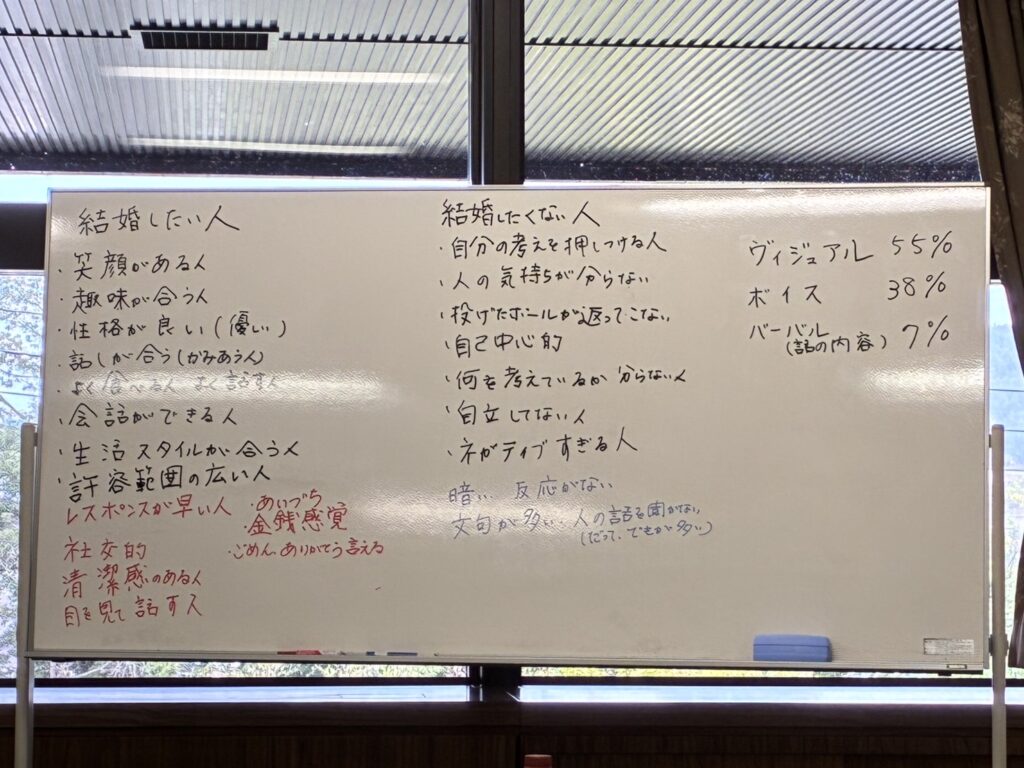 結婚したい人
・笑顔がある人
・趣味が合う人
・性格が良い(優しい)
・話しが合う(かみあう人)
・よく食べる人 よく話す人
・会話ができる人
・生活スタイルが合う人
・許容範囲の広い人
レスポンスが早い人
社交的
清潔感のある人
目を見て話す人
・あいづち
・金銭感覚
・ごめん、ありがとう言える
結婚したくない人
・自分の考えを押しつける人
・人の気持ちが分らない
・投げたボールが返ってこない
・自己中心的
・何を考えているか分らない人
・自立してない人
・ネガティブすぎる人
暗い 反応がない
文句が多い・人の話を聞かない
(だって、でもが多い)
ヴィジュアル 55%
ボイス 38%
バーバル 7%
(話の内容)